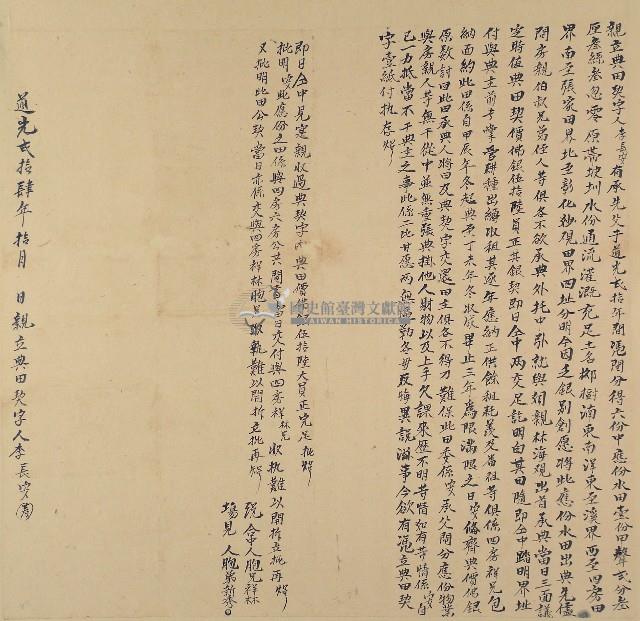 親立典田契字人李長安有承先父于道光弍拾年間鬮分得六份中應份水田壹份田聲弍分叁
厘叁絲叁忽零原帶坡圳水份通流灌溉充足土名椰樹湳東南洋東至溪界西至四房田
界南至張家田界北至彰化妙現田界四址分明今因乏銀別創愿將此應份水田出典先儘
問房親伯叔兄弟侄人等俱各不欲承典外托中引就與朋親林海現出首承典當日三面議
定時值典田契價佛銀伍拾陸員正其銀契即日仝中兩交足訖明白其田隨即仝中踏明界址
付與典主前去掌管耕種出贌收租其逐年應納正供餘租耗羨等俱係四房祥兄包
納面約此田係自甲辰年冬起典至丁未年冬收成畢止三年為限滿限之日安備齊典價佛銀
原數討回此田承典人將田及典契字交還田主俱各不得刁難保此田委係安承父鬮分應份物業
與房親人等無干從中並無重張典掛他人財物以及上手欠課來歷不明等情如有等情係安自
己一力抵當不干典主之事此係二比甘愿兩無勒各毋反悔異說滋事今欲有憑立典田契
字壹紙付执存炤
即日仝中見定親收過典契字內典田價佛銀伍拾陸大員正完足批炤
批明安此應份之田係與四房六房公共鬮書當日交付與四房祥林兄收执難以開拆立批再炤
又批明此田公契當日亦係交與四房祥林胞兄收執難以開拆立批再炤
說合中人胞兄祥林
塲見人胞弟新秀
道光弍拾肆年拾月 日親立典田契字人李長安
國史館臺灣文獻館
TAIWAN HISTORICA